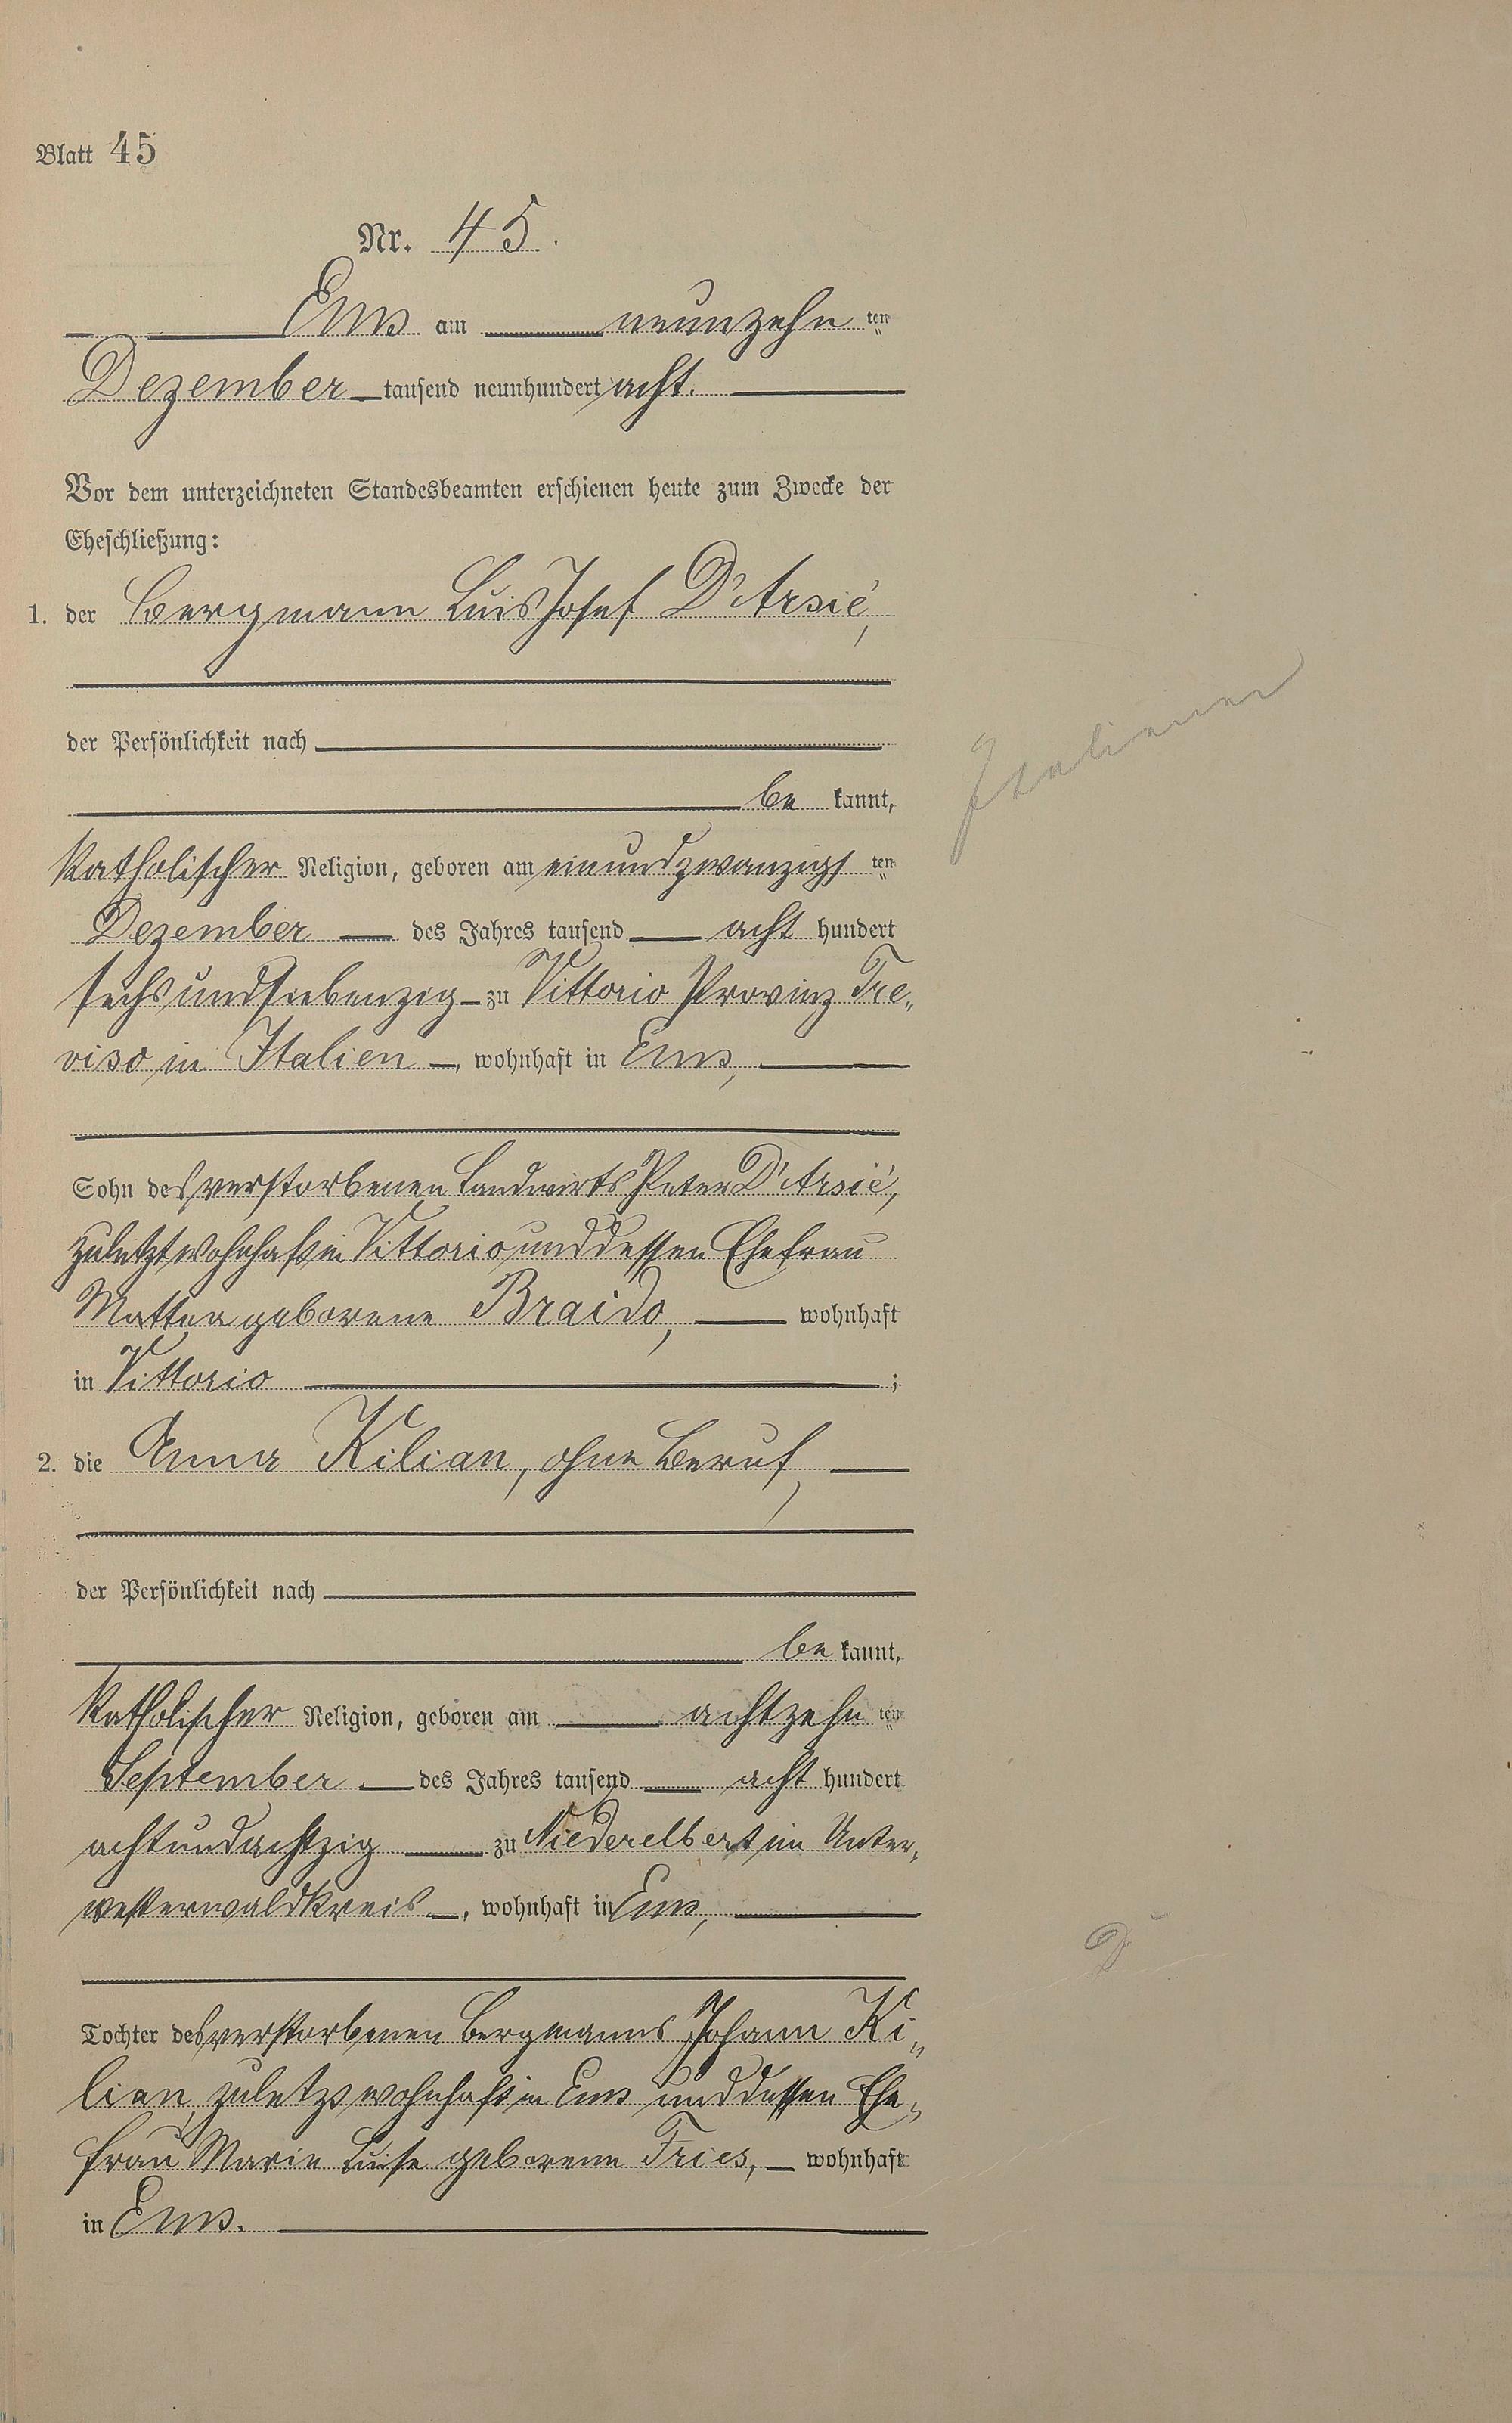 Blatt 45
Nr. 45.
Ems am neunzehn ten
Dezember tausend neunhundert acht.
Vor dem unterzeichneten Standesbeamten erschienen heute zum Zwecke der
Eheschließung:
1. der Bergmann Luis Josef D'Arsié,
der Persönlichkeit nach
be kannt,
katholischer Religion, geboren am einundzwanzigs ten
Dezember des Jahres tausend acht hundert
sechsundsiebenzig zu Vittorio Provinz Tre„
viso in Italien, wohnhaft in Ems,
Sohn des verstorbenen Landwirts Peter D'Arsié,
zuletzt wohnhaft in Vittorio und dessen Ehefrau
Mattea geborene Braido, wohnhaft
in Vittorio ;
2. die Anna Kilian, ohne Beruf,
der Persönlichkeit nach
be kannt,
katholischer Religion, geboren am achtzehn ten
September des Jahres tausend acht hundert
achtundachtzig zu Niederelbert im Unter„
westerwaldkreis, wohnhaft in Ems,
Tochter des verstorbenen Bergmanns Johann Ki„
lian, zuletzt wohnhaft in Ems und dessen Ehe„
frau Marie Luise geborene Fries, wohnhaft
in Ems.
Italiener
D